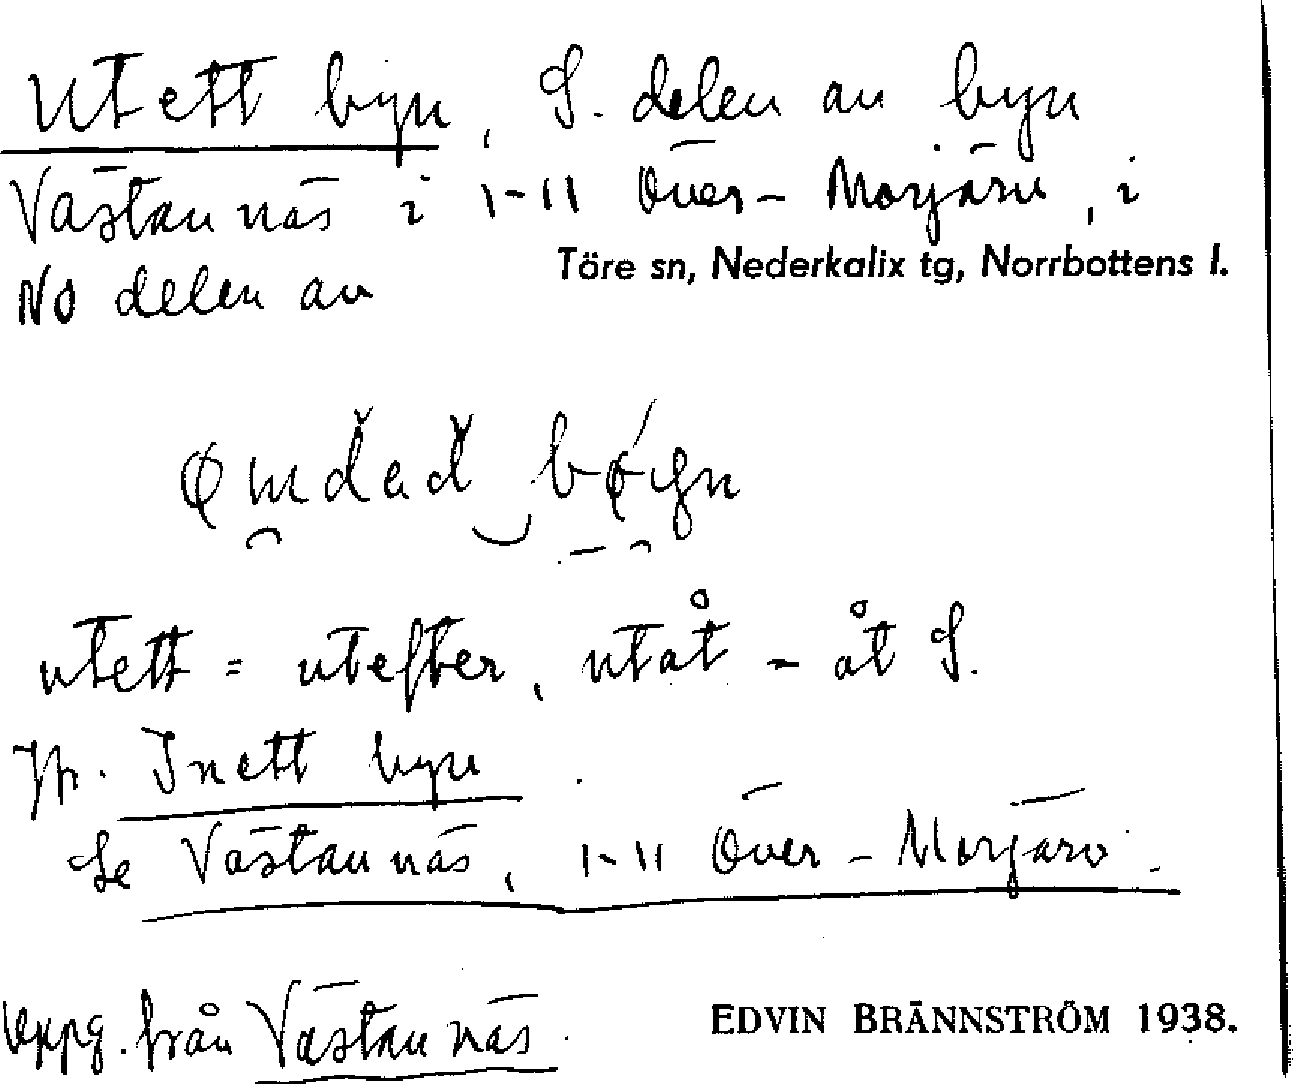 Utett byn, S. delen av byn
Västannäs i 1-11 Över-Morjärv, i
NO delen av
Töre sn, Nederkalix tg, Norrbottens l.
utett = utefter, utåt - åt S.
Jfr. Inett byn
Se Västannäs, 1-11 Över-Morjärv.
Uppg. från Västannäs.
EDVIN BRÄNNSTRÖM 1938.